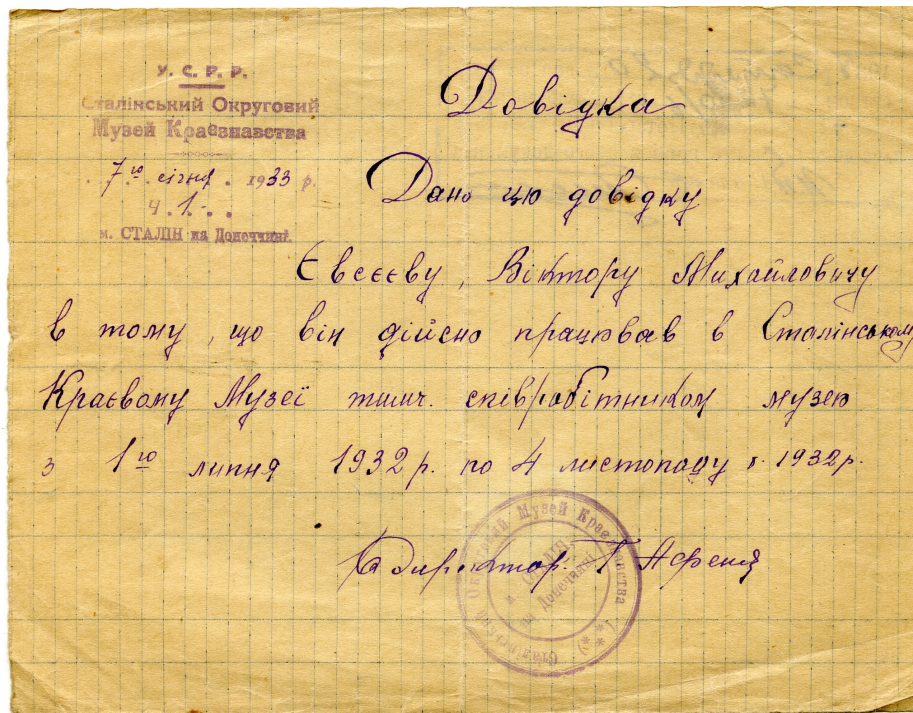 У. С. Р. Р.
Сталінський Округовий
Музей Краєзнавства
7го січня 1933 р.
Ч. 1.
м. СТАЛІН на Донеччині.
Довідка
Дано цю довідку
Євсєєву, Віктору Михайловичу
в тому, що він дійсно працював в Сталінському
Краєвому Музеї тимч. співробітником музею
з 1го липня 1932 р. по 4 листопаду р. 1932 р.
Директор.
Сталінський Округовий Музей Краєзнавства
м. СТАЛІН
на Донеччині